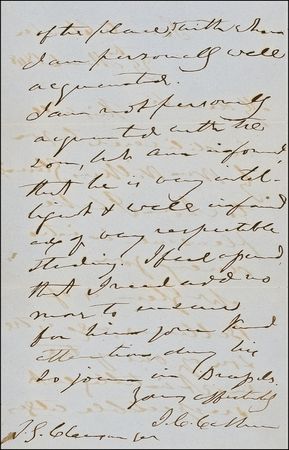 of the place, with whom
I am personally well
acquainted.
I am not personally
acquainted with the
son, but am informed,
that he is very intel-
ligent & well informed
and of very respectable
standing. I feel assured,
that I need add no
more to ensure
for him your kind
attention during his
sojourn in Brussels.
Yours affectionately
J. C. Calhoun
J. G. Clemson